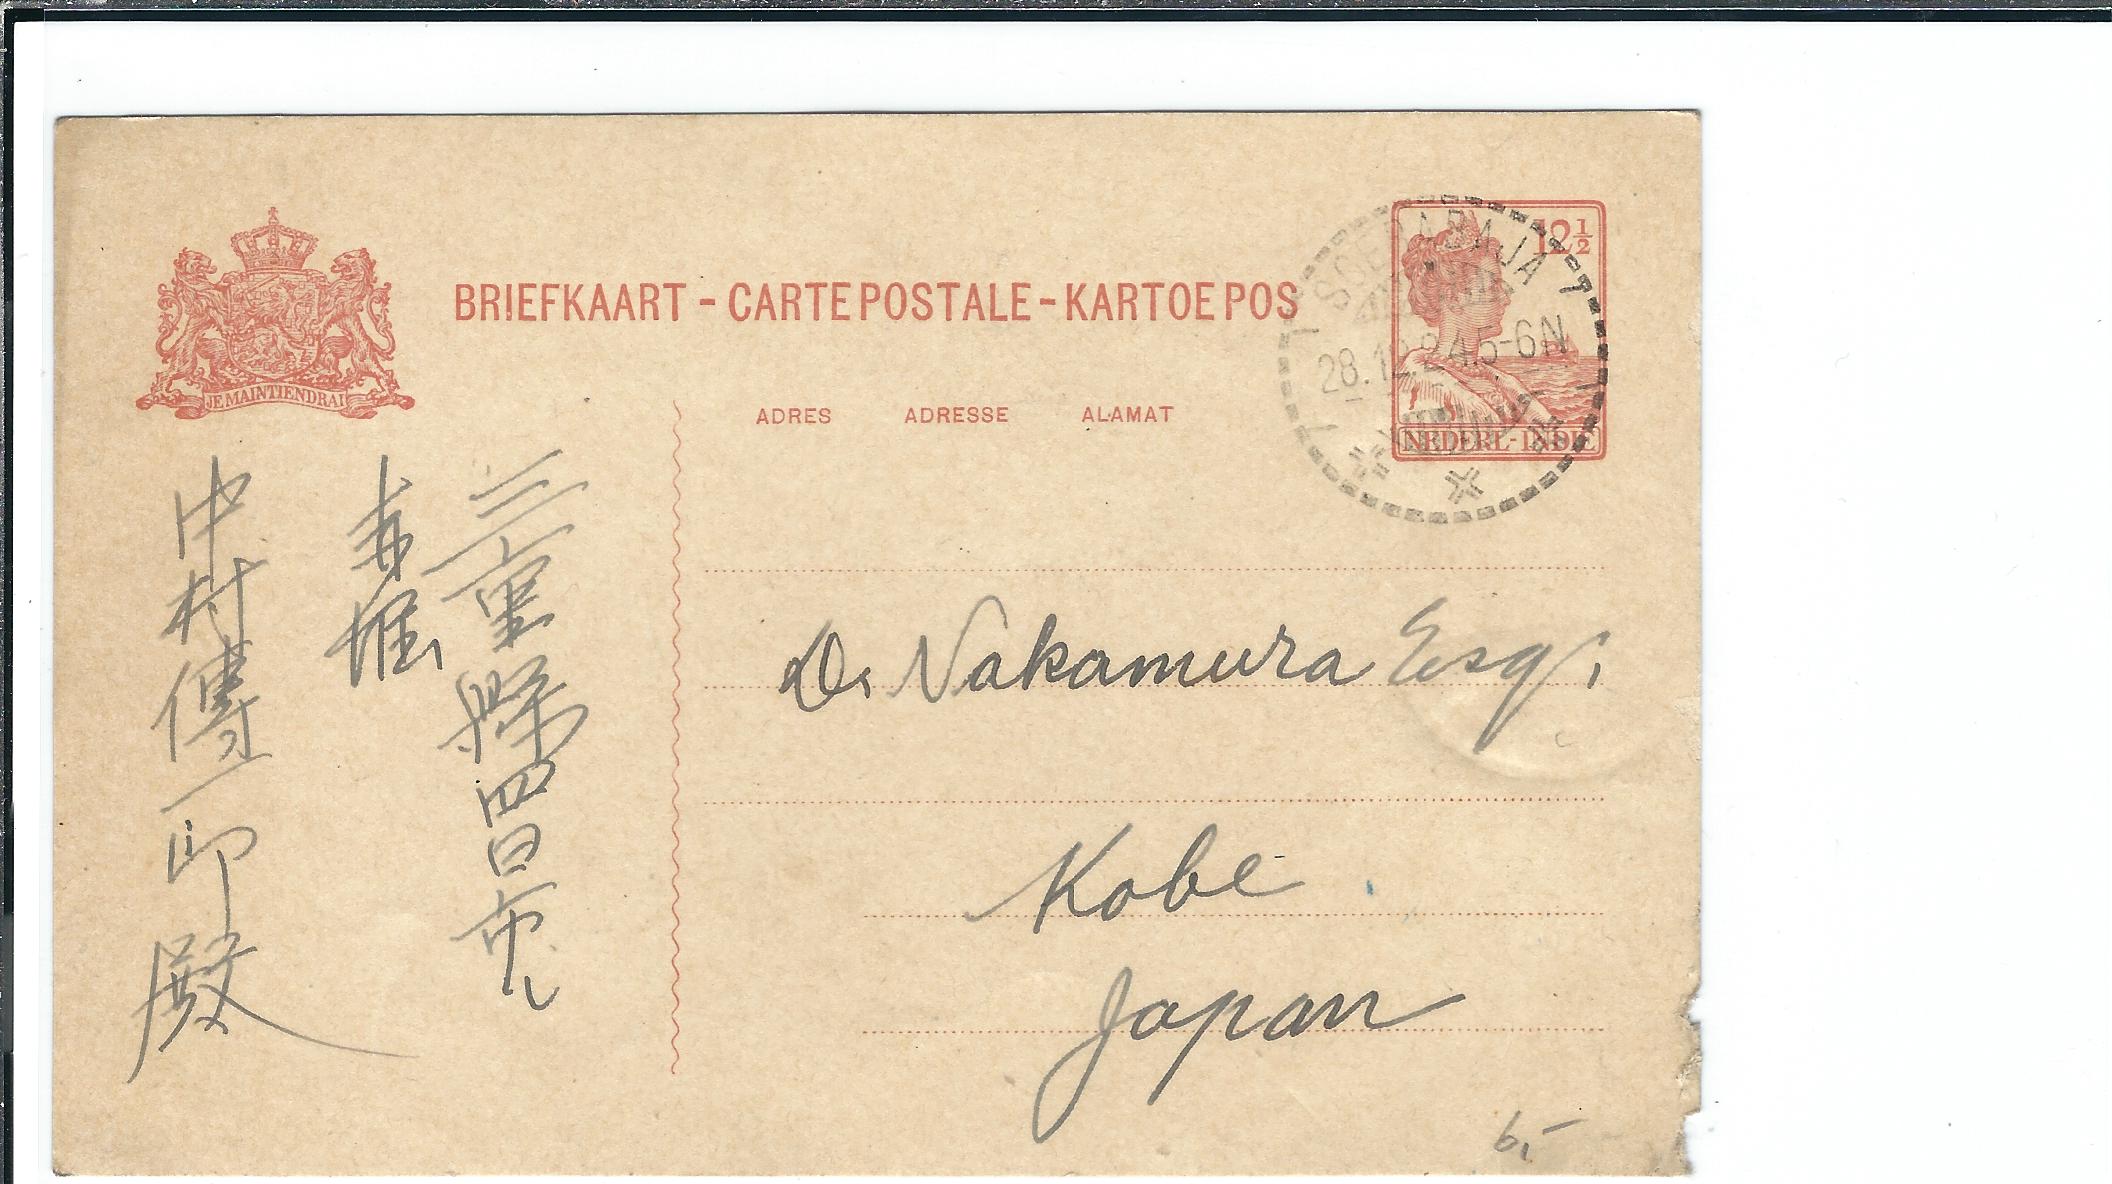 JE MAINTIENDRAI
BRIEFKAART - CARTE POSTALE - KARTOE POS
12½
NEDERL-INDIË
SOERABAJA
28.12.24.5-6N
ADRES ADRESSE ALAMAT
D. Nakamura Esq.
Kobe
Japan
三重縣四日市
赤堀
中村傳一郎殿
6,-